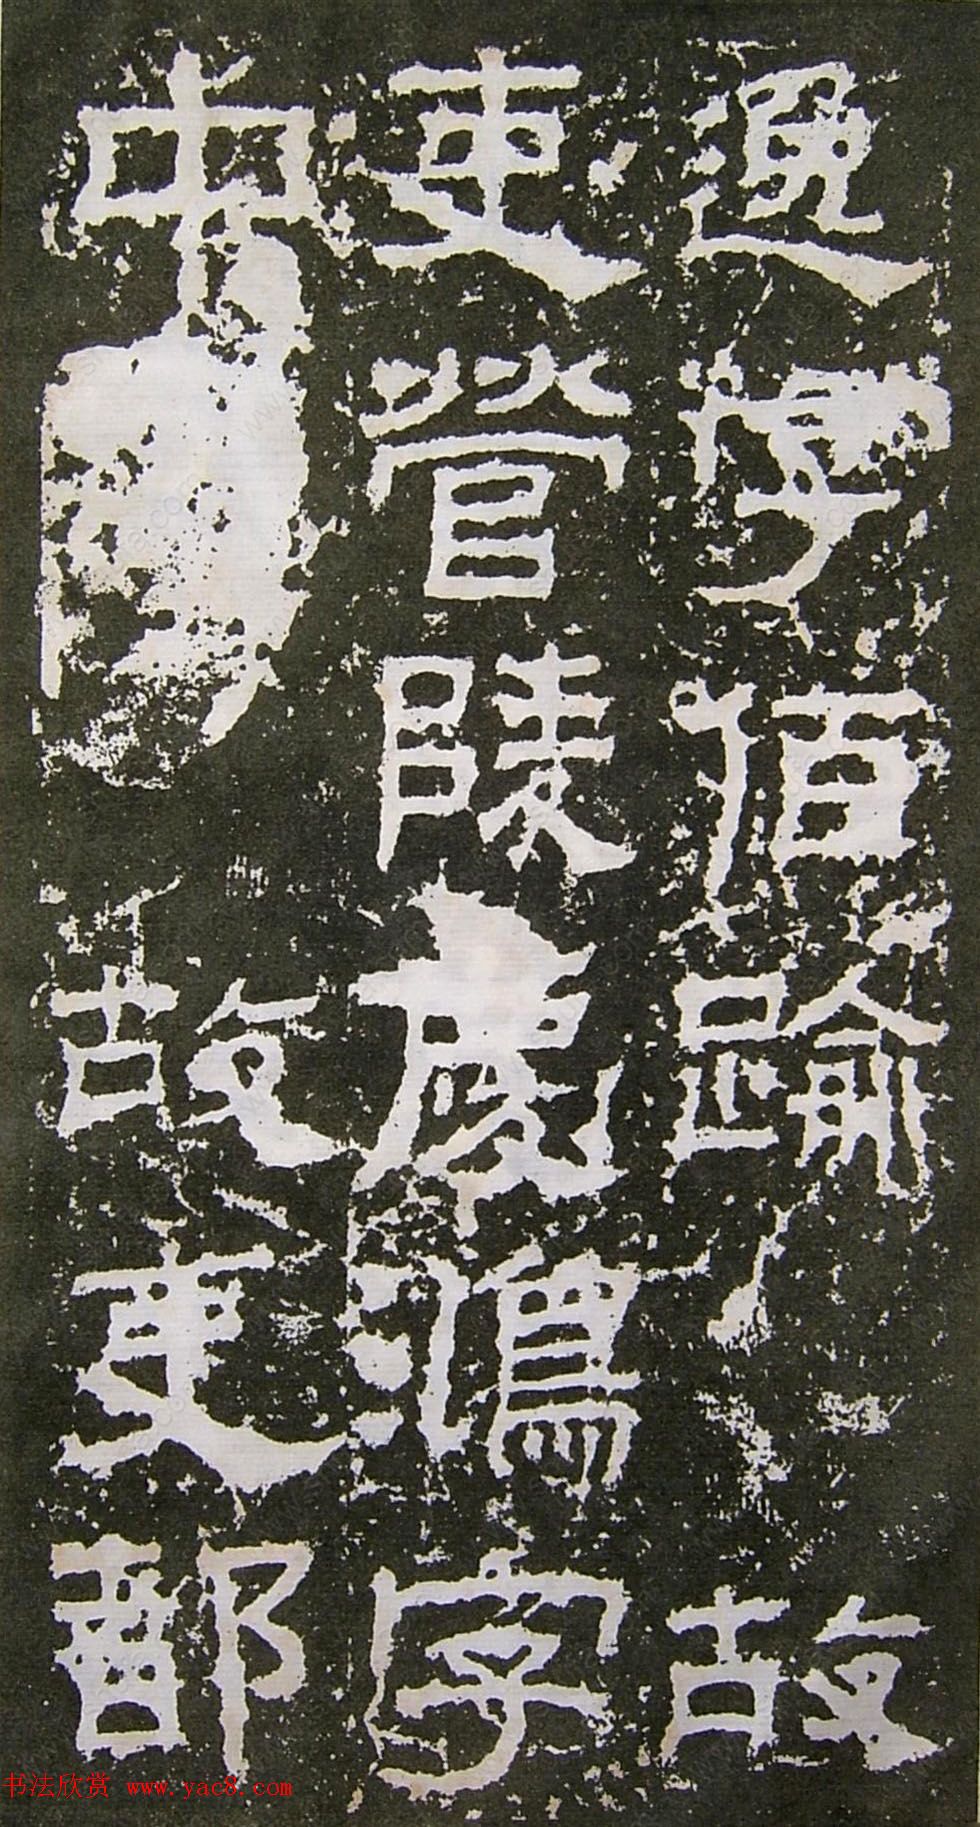 逸字佰踰 故
吏營陵慶鴻字
中 故吏都
书法欣赏 www.yac8.com